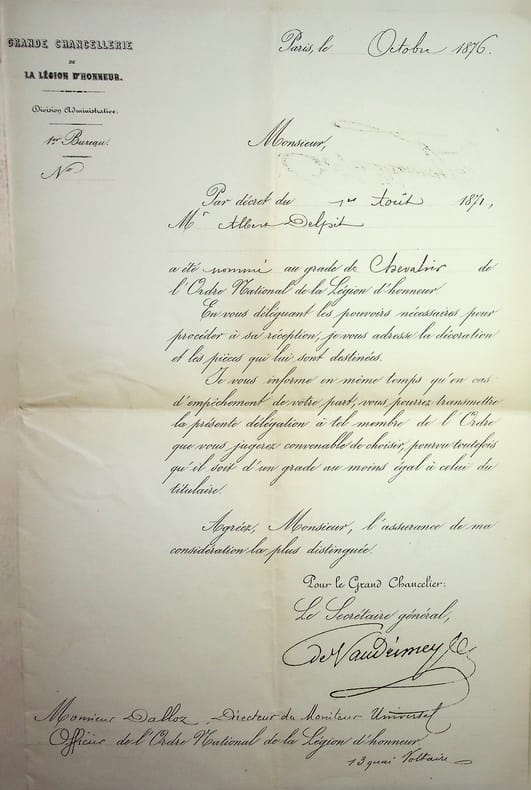 GRANDE CHANCELLERIE
DE
LA LÉGION D'HONNEUR.
Division Administrative.
1er Bureau.
No
Paris, le Octobre 1876.
Monsieur,
Par décret du 1er Août 1871,
Mr Albert Delpit
a été nommé au grade de Chevalier de
l'Ordre National de la Légion d'honneur.
En vous déléguant les pouvoirs nécessaires pour
procéder à sa réception, je vous adresse la décoration
et les pièces qui lui sont destinées.
Je vous informe en même temps qu'en cas
d'empêchement de votre part, vous pourrez transmettre
la présente délégation à tel membre de l'Ordre
que vous jugerez convenable de choisir, pourvu toutefois
qu'il soit d'un grade au moins égal à celui du
titulaire.
Agréez, Monsieur, l'assurance de ma
considération la plus distinguée.
Pour le Grand Chancelier:
Le Secrétaire général,
de Vaudrimey
Monsieur Dalloz, Directeur du Moniteur Universel
Officier de l'Ordre National de la Légion d'honneur.
13 quai Voltaire